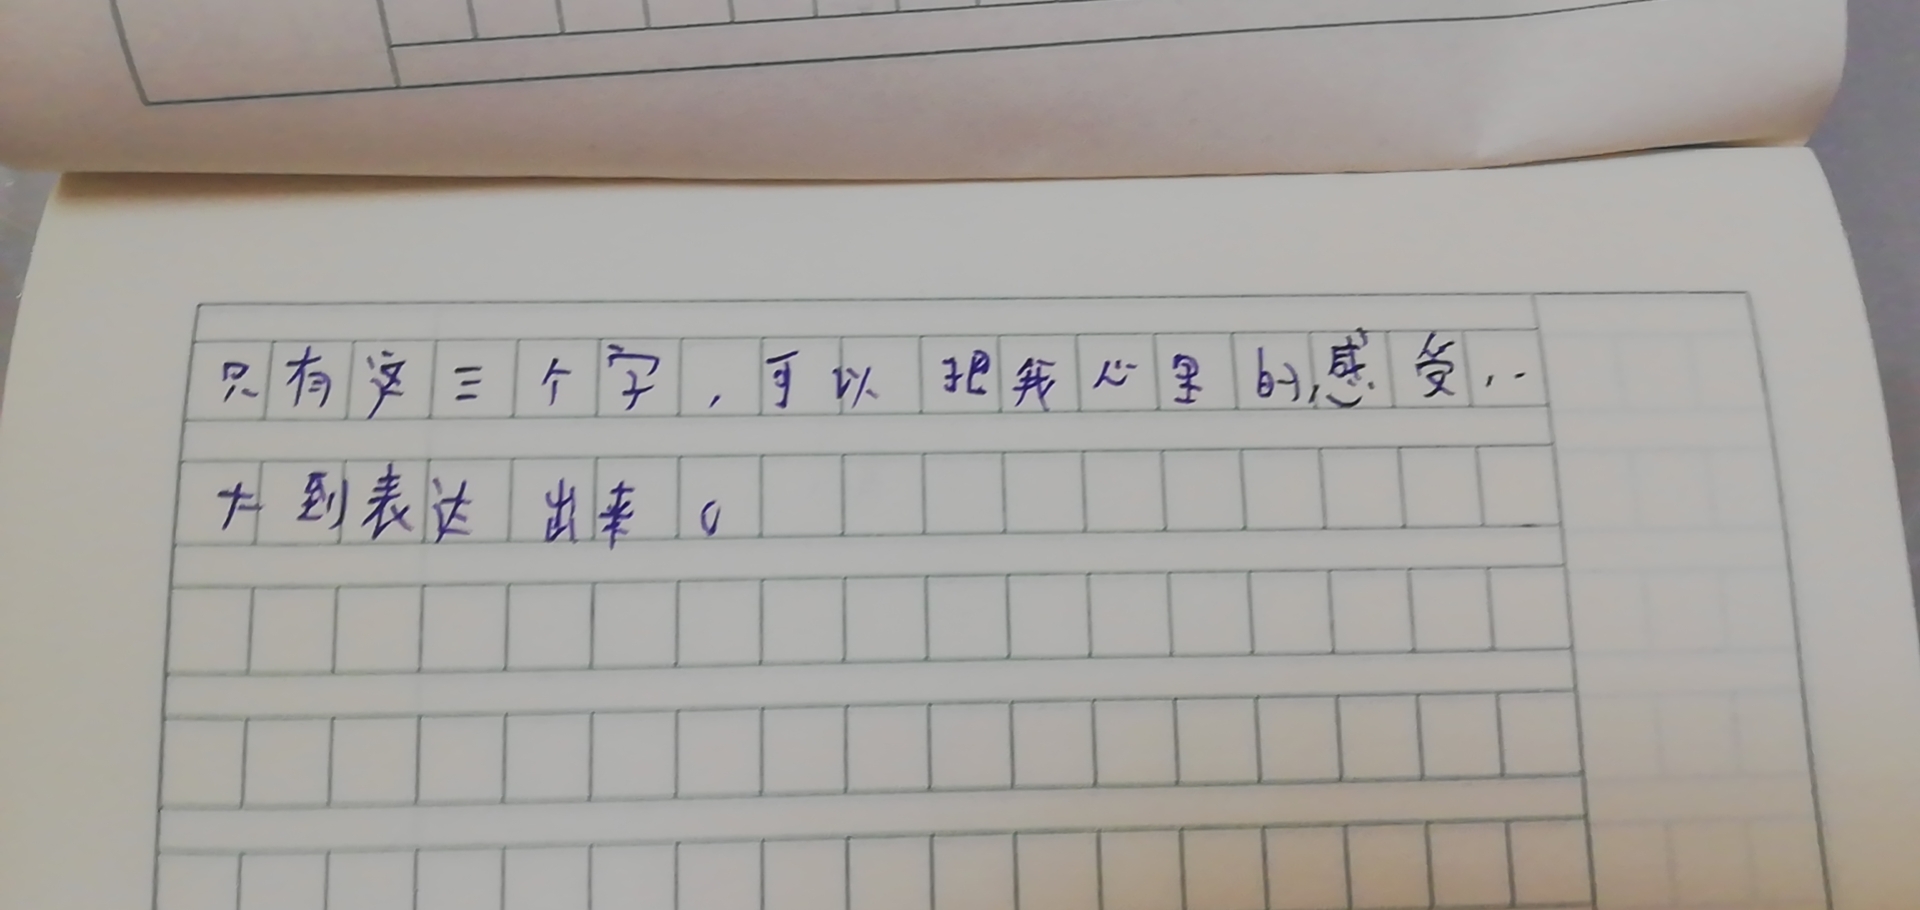 只有这三个字，可以把我心里的感受，
到表达出来。